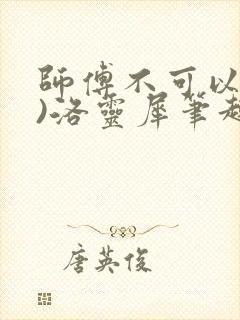 師傅不可以
)洛靈犀筆趣
唐英俊